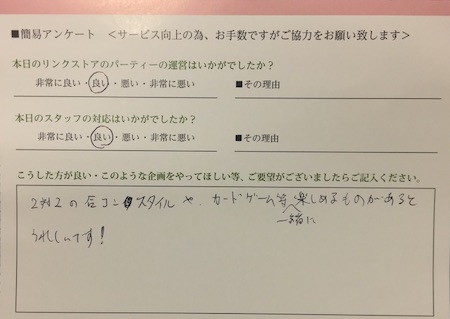 ■簡易アンケート ＜サービス向上の為、お手数ですがご協力をお願い致します＞
本日のリンクストアのパーティーの運営はいかがでしたか？
非常に良い・良い・悪い・非常に悪い ■その理由
本日のスタッフの対応はいかがでしたか？
非常に良い・良い・悪い・非常に悪い ■その理由
こうした方が良い・このような企画をやってほしい等、ご要望がございましたらご記入ください。
2対2の合コンスタイルや、カードゲーム等楽しめるものがあると
一緒に
うれしいです！